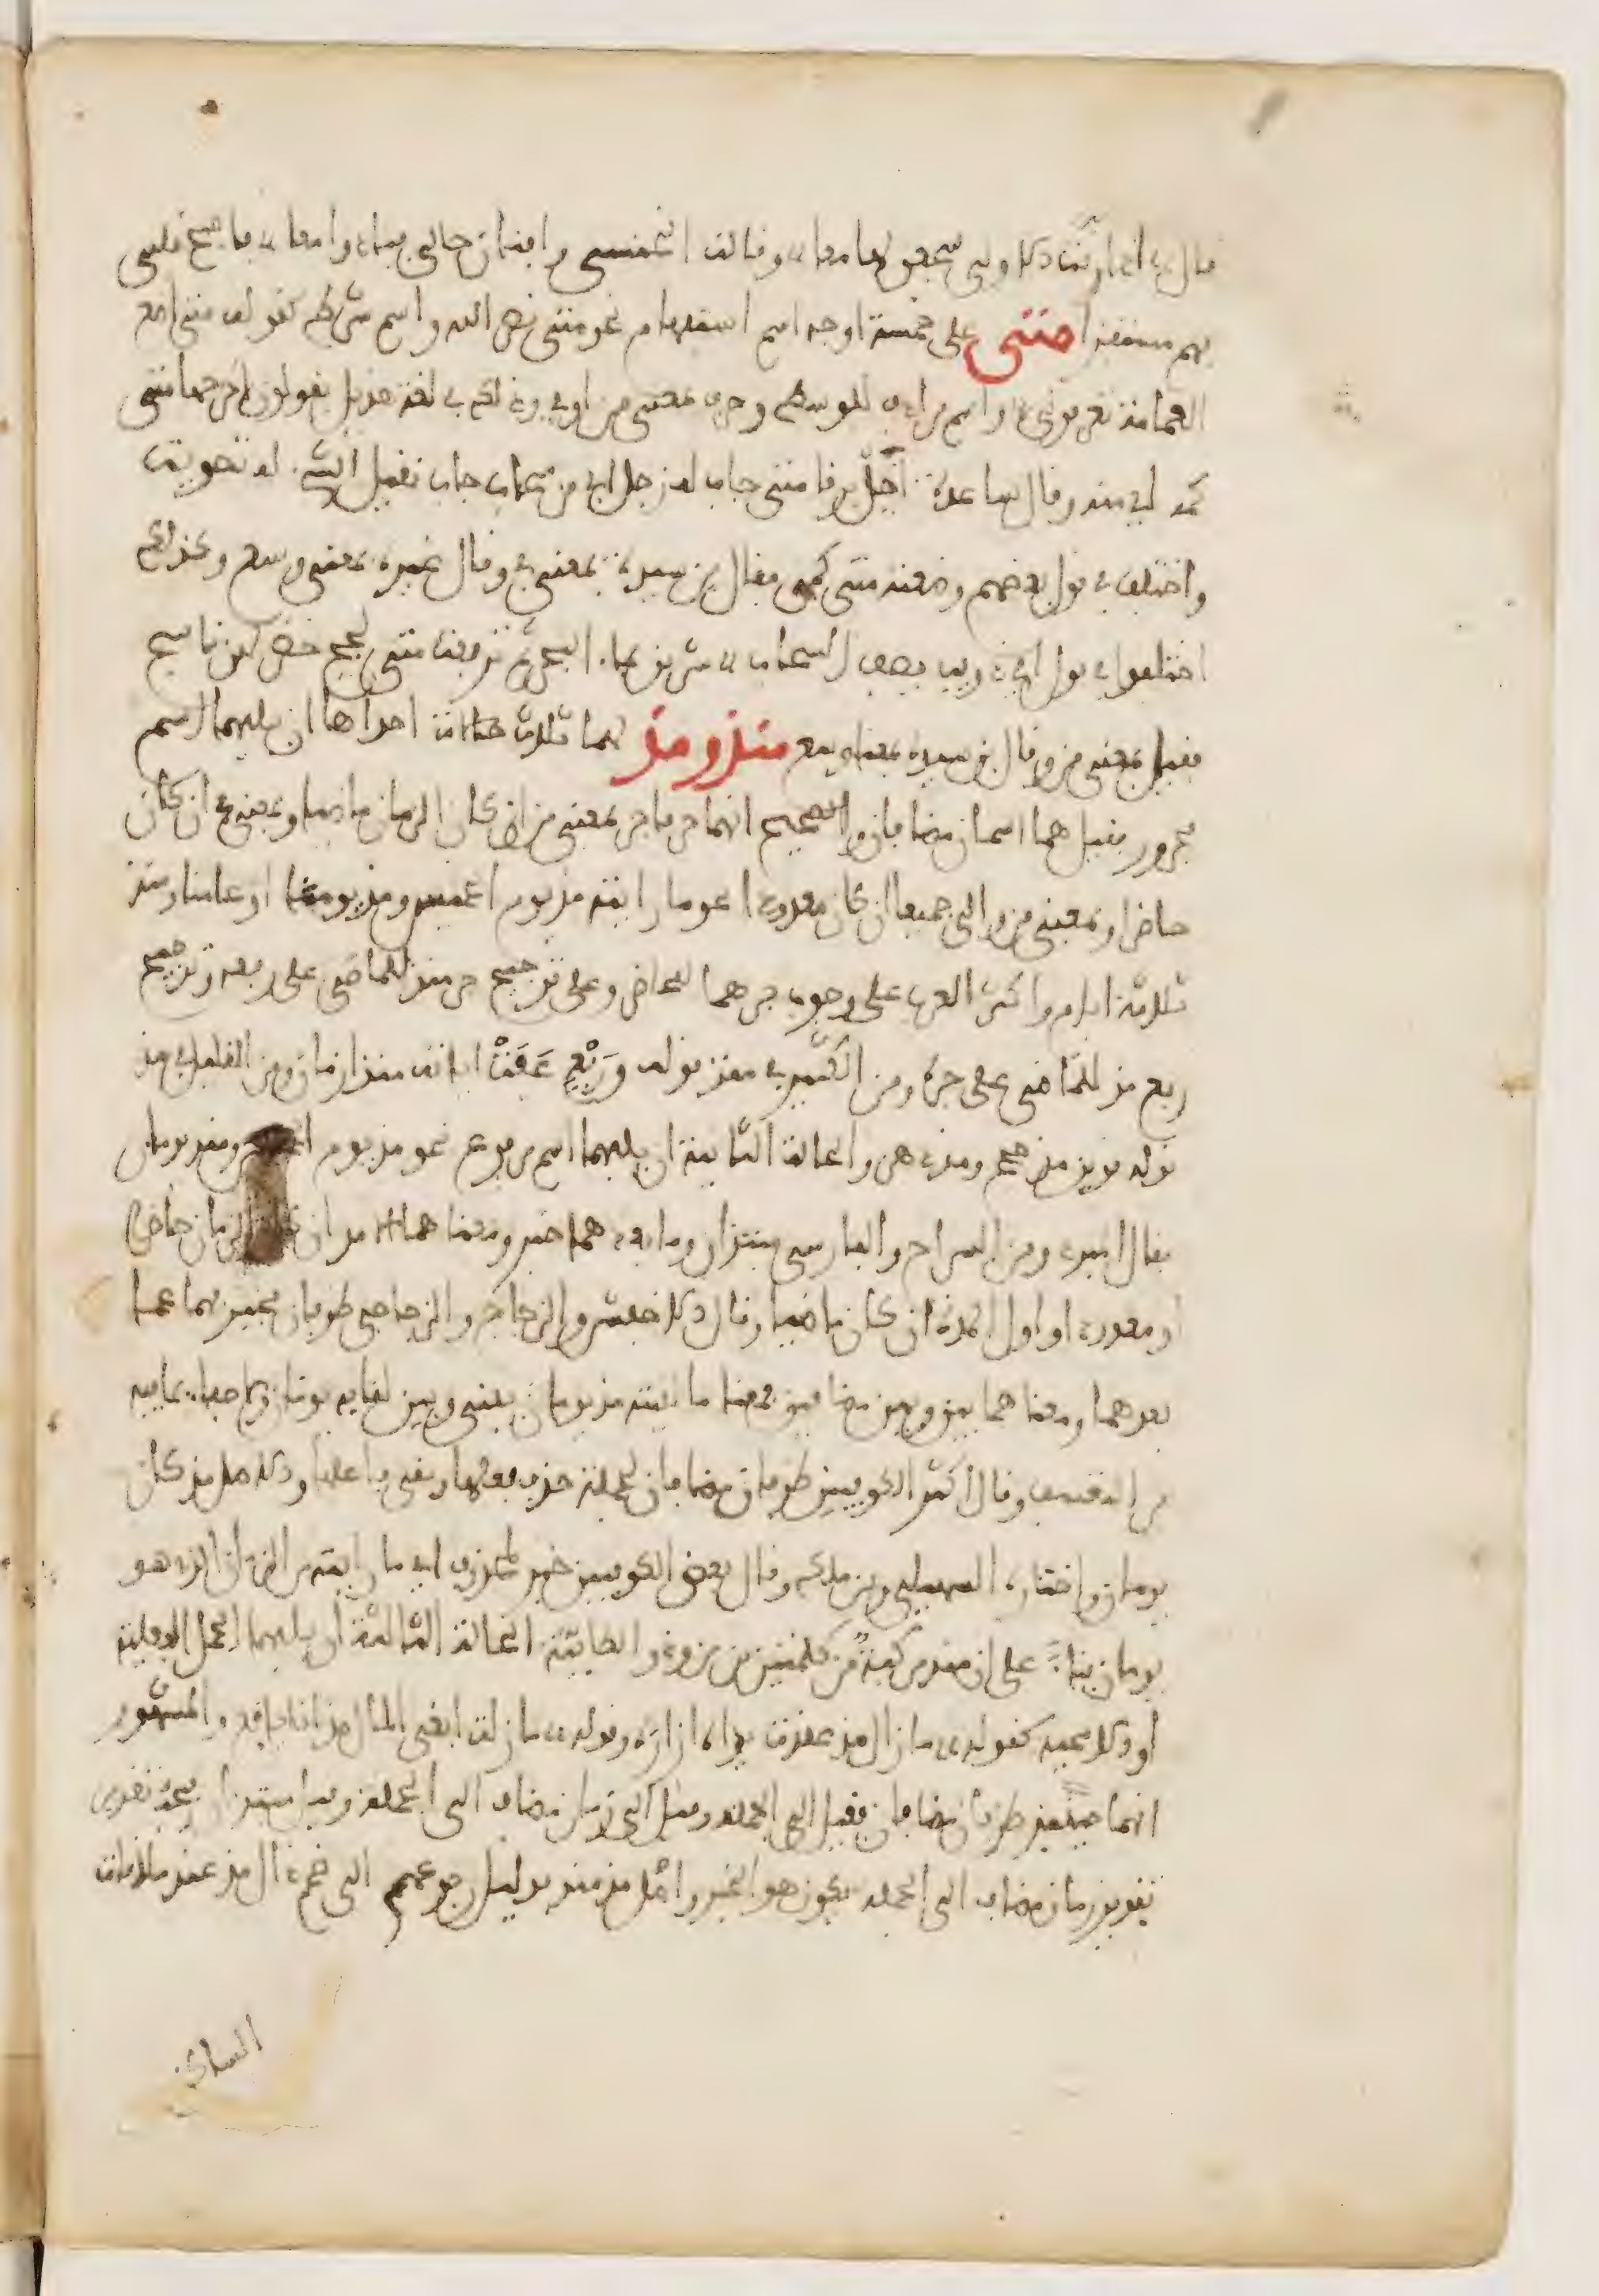 قال اذا حنت الاولى سجعن لها معا وقالت الخنساء وافنى رجالي فبادوا معا فاصبح قلبي
بهم مستفزا متى على خمسة اوجه اسم استفهام نحو متى نصر الله واسم شرط كقوله متى اضع
العمامة تعرفوني واسم مرادف للوسط وحرف بمعنى من او في وذلك في لغة هذيل يقولون اخرجها متى
كمه اي منه وقال ساعدة اخيل برقا متى حاب له زجل اي من سحاب حاب ثقيل المشي له تصويت
واختلف في قول بعضهم وضعته متى كمي فقال بن سيده بمعنى في وقال غيره بمعنى وسط وكذلك
اختلفوا في قول ابي ذويب يصف السحاب شربن بماء البحر ثم ترفعت متى لجج خضر لهن نئيج
فقيل بمعنى من وقال بن سيده بمعنى وسط منذ ومذ لهما ثلاث حالات احداها ان يليهما اسم
مجرور فقيل هما اسمان مضافان والصحيح انهما حرفا جر بمعنى من ان كان الزمان ماضيا وبمعنى في ان كان
حاضرا وبمعنى من والى جميعا ان كان معدودا نحو ما رايته مذ يوم الخميس ومذ يومنا او عامنا ومنذ
ثلاثة ايام واكثر العرب على وجوب جرهما للحاضر وعلى ترجيح جر منذ للماضي على رفعه وترجيح
رفع مذ للماضي على جره ومن الكثير في منذ قوله وَرَبْعٍ عَفَتْ اثاره منذ ازمان ومن القليل في مذ
قوله اقوين مذ حجج ومذ دهر والحالة الثانية ان يليهما اسم مرفوع نحو مذ يوم الخميس ومنذ يومان
فقال المبرد وبن السراج والفارسي مبتدان وما بعدهما خبر ومعناهما الامد ان كان الزمان حاضرا
او معدودا او اول المدة ان كان ماضيا وقال الاخفش والزجاج والزجاجي ظرفان مخبر بهما عما
بعدهما ومعناهما بين وبين مضافين فمعنا ما لقيته مذ يومان بيني وبين لقايه يومان ولا خفاء بما فيه
من التعسف وقال اكثر الكوفيين ظرفان مضافان لجملة حذف فعلها وبقي فاعلها والاصل مذ كان
يومان واختاره السهيلي وبن مالك وقال بعض الكوفيين خبر لمحذوف اي ما رايته من الزمان الذي هو
يومان بناءً على ان منذ مركبة من كلمتين من وذو الطائية الحالة الثالثة ان يليهما الجمل الفعلية
او الاسمية كقوله ما زال مذ عقدت يداه ازاره وقوله ما زلت ابغي المال مذ انا يافع والمشهور
انهما حينيذ ظرفان مضافان فقيل الى الجملة وقيل الى زمن مضاف الى الجملة وقيل مبتدان فيجب تقدير
تقدير زمان مضاف الى الجملة يكون هو الخبر واصل مذ منذ بدليل رجوعهم الى ضم ذال مذ عند ملاقات
الساكن